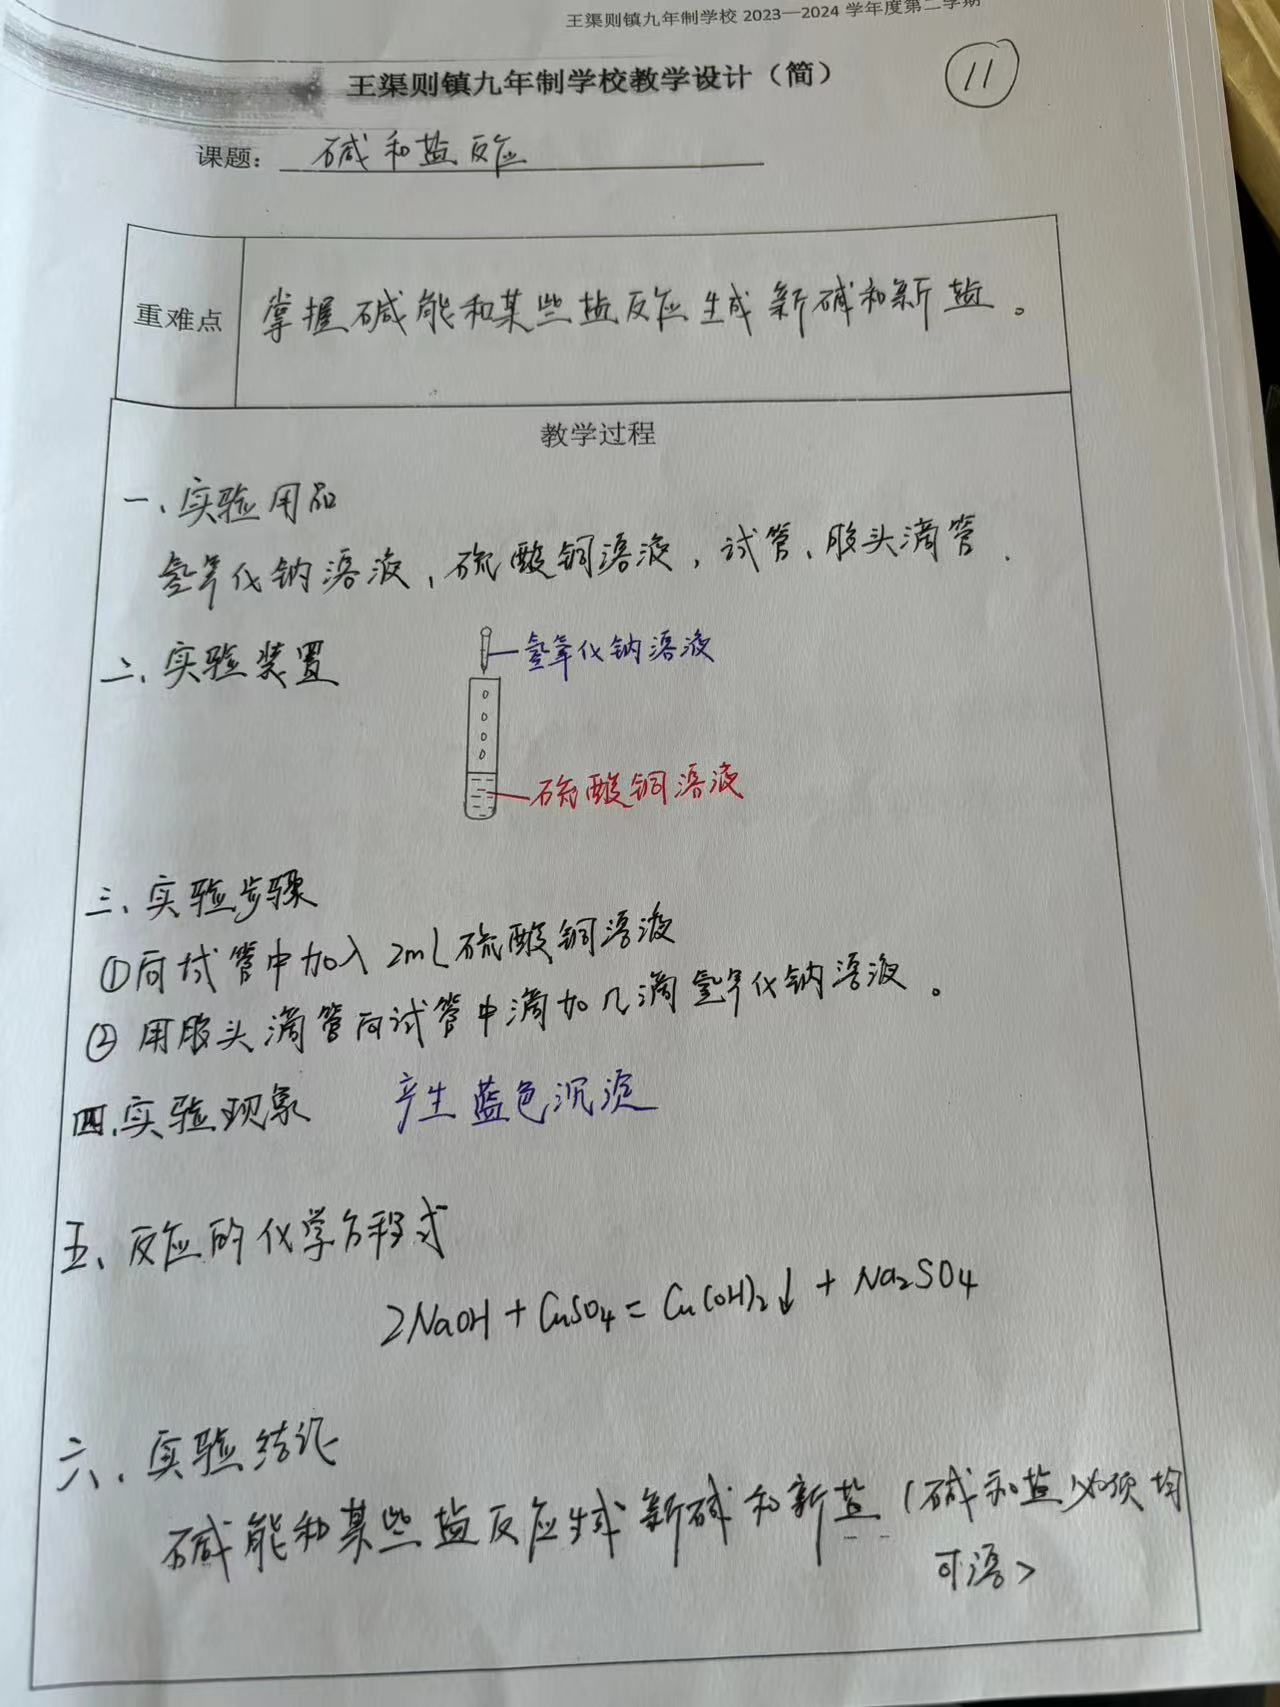 王渠则镇九年制学校 2023—2024 学年度第二学期
王渠则镇九年制学校教学设计（简）
11
课题： 碱和盐反应
重难点
掌握碱能和某些盐反应生成新碱和新盐。
教学过程
一、实验用品
氢氧化钠溶液、硫酸铜溶液，试管、胶头滴管．
二、实验装置
氢氧化钠溶液
硫酸铜溶液
三、实验步骤
①向试管中加入 2mL 硫酸铜溶液
② 用胶头滴管向试管中滴加几滴氢氧化钠溶液。
四.实验现象 产生蓝色沉淀
五、反应的化学方程式
2NaOH + CuSO4 = Cu(OH)2↓ + Na2SO4
六、实验结论
碱能和某些盐反应生成新碱和新盐（碱和盐必须均
可溶）